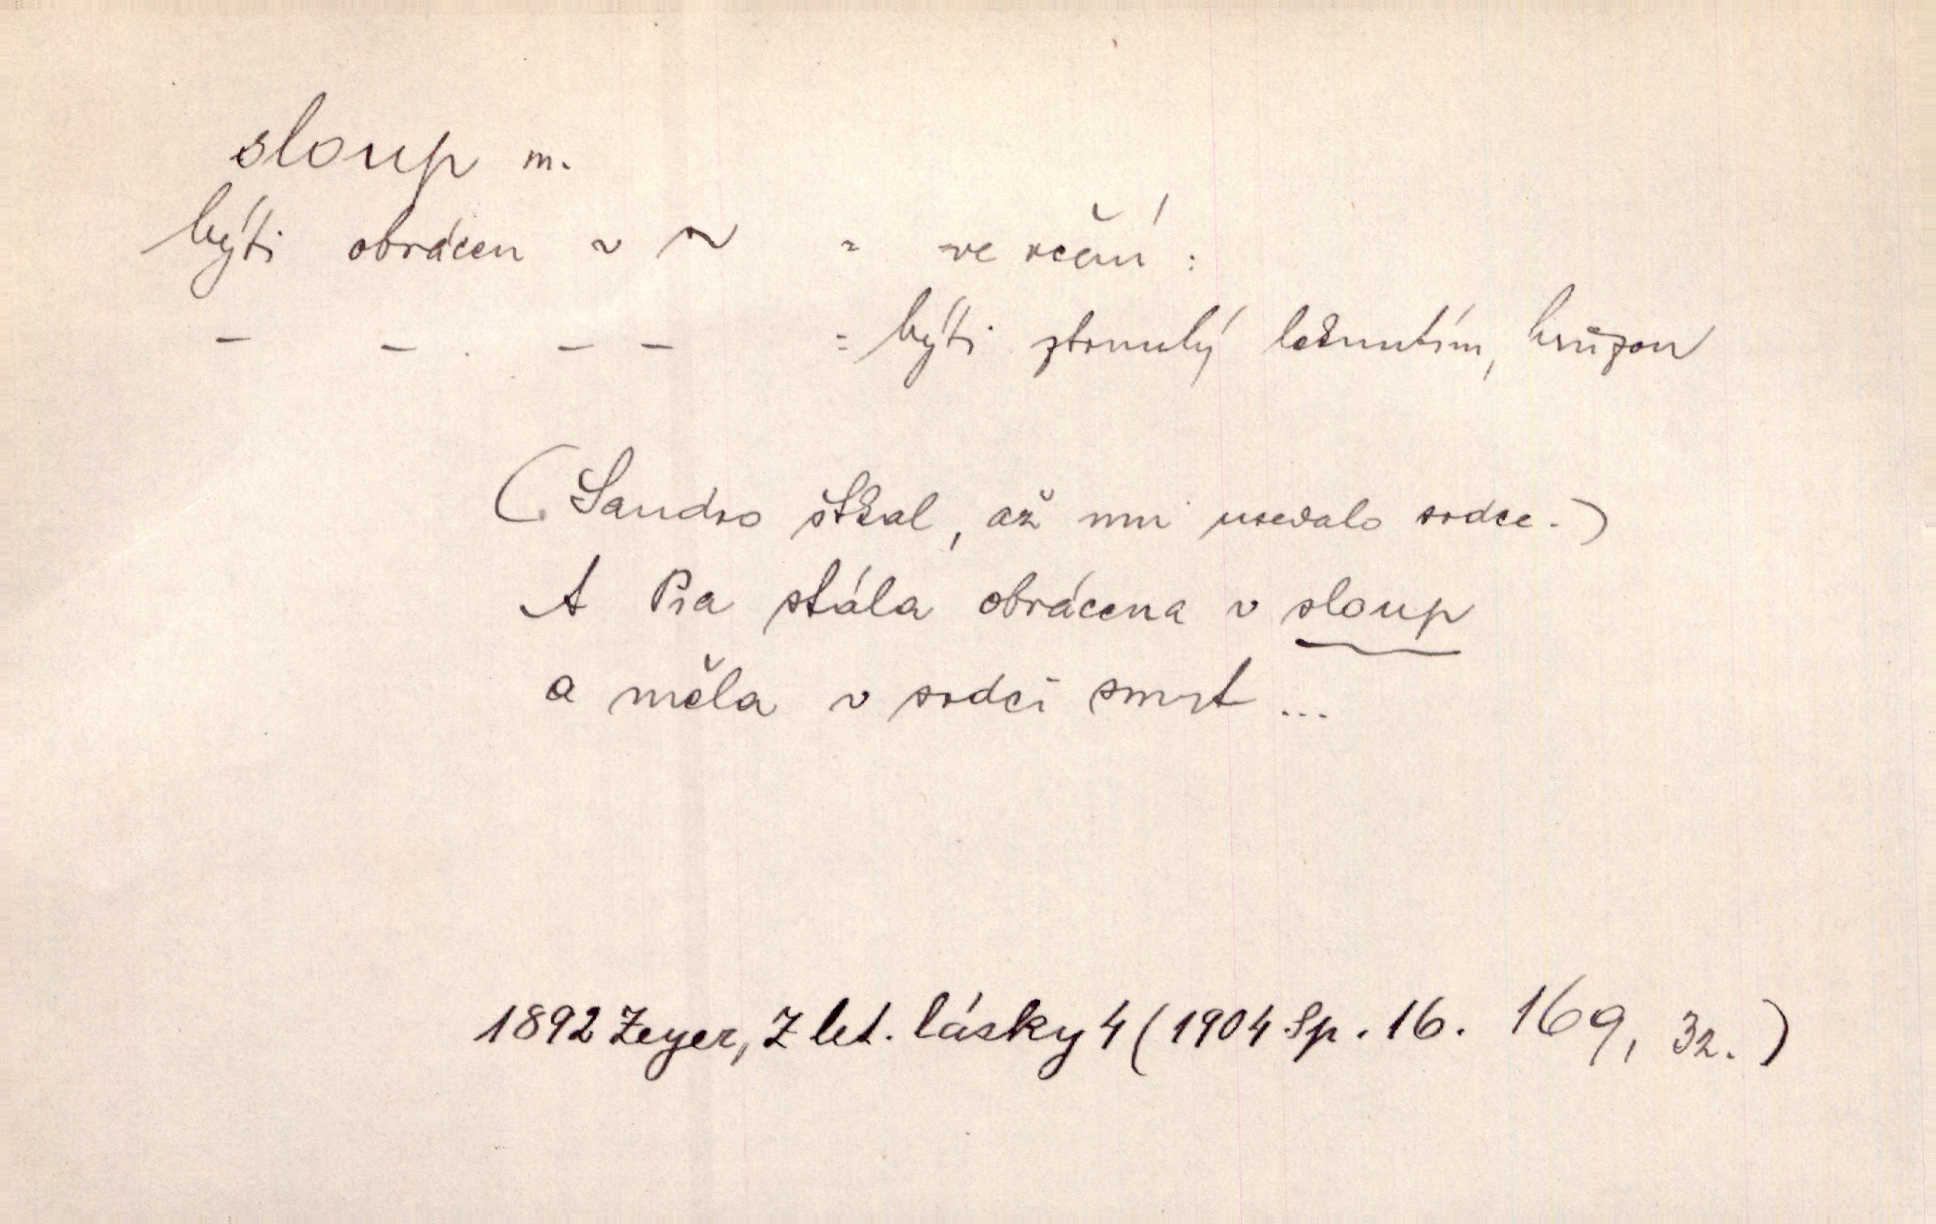 sloup m.
býti obrácen v ~ = ve rčení:
— — . — — = býti ztrnulý leknutím, hrůzou
(Sandro štkal, až mu usedalo srdce.)
A Pia stála obrácena v sloup
a měla v srdci smrt ...
1892 Zeyer, Z let. lásky 4 (1904 Sp. 16. 169, 32.)